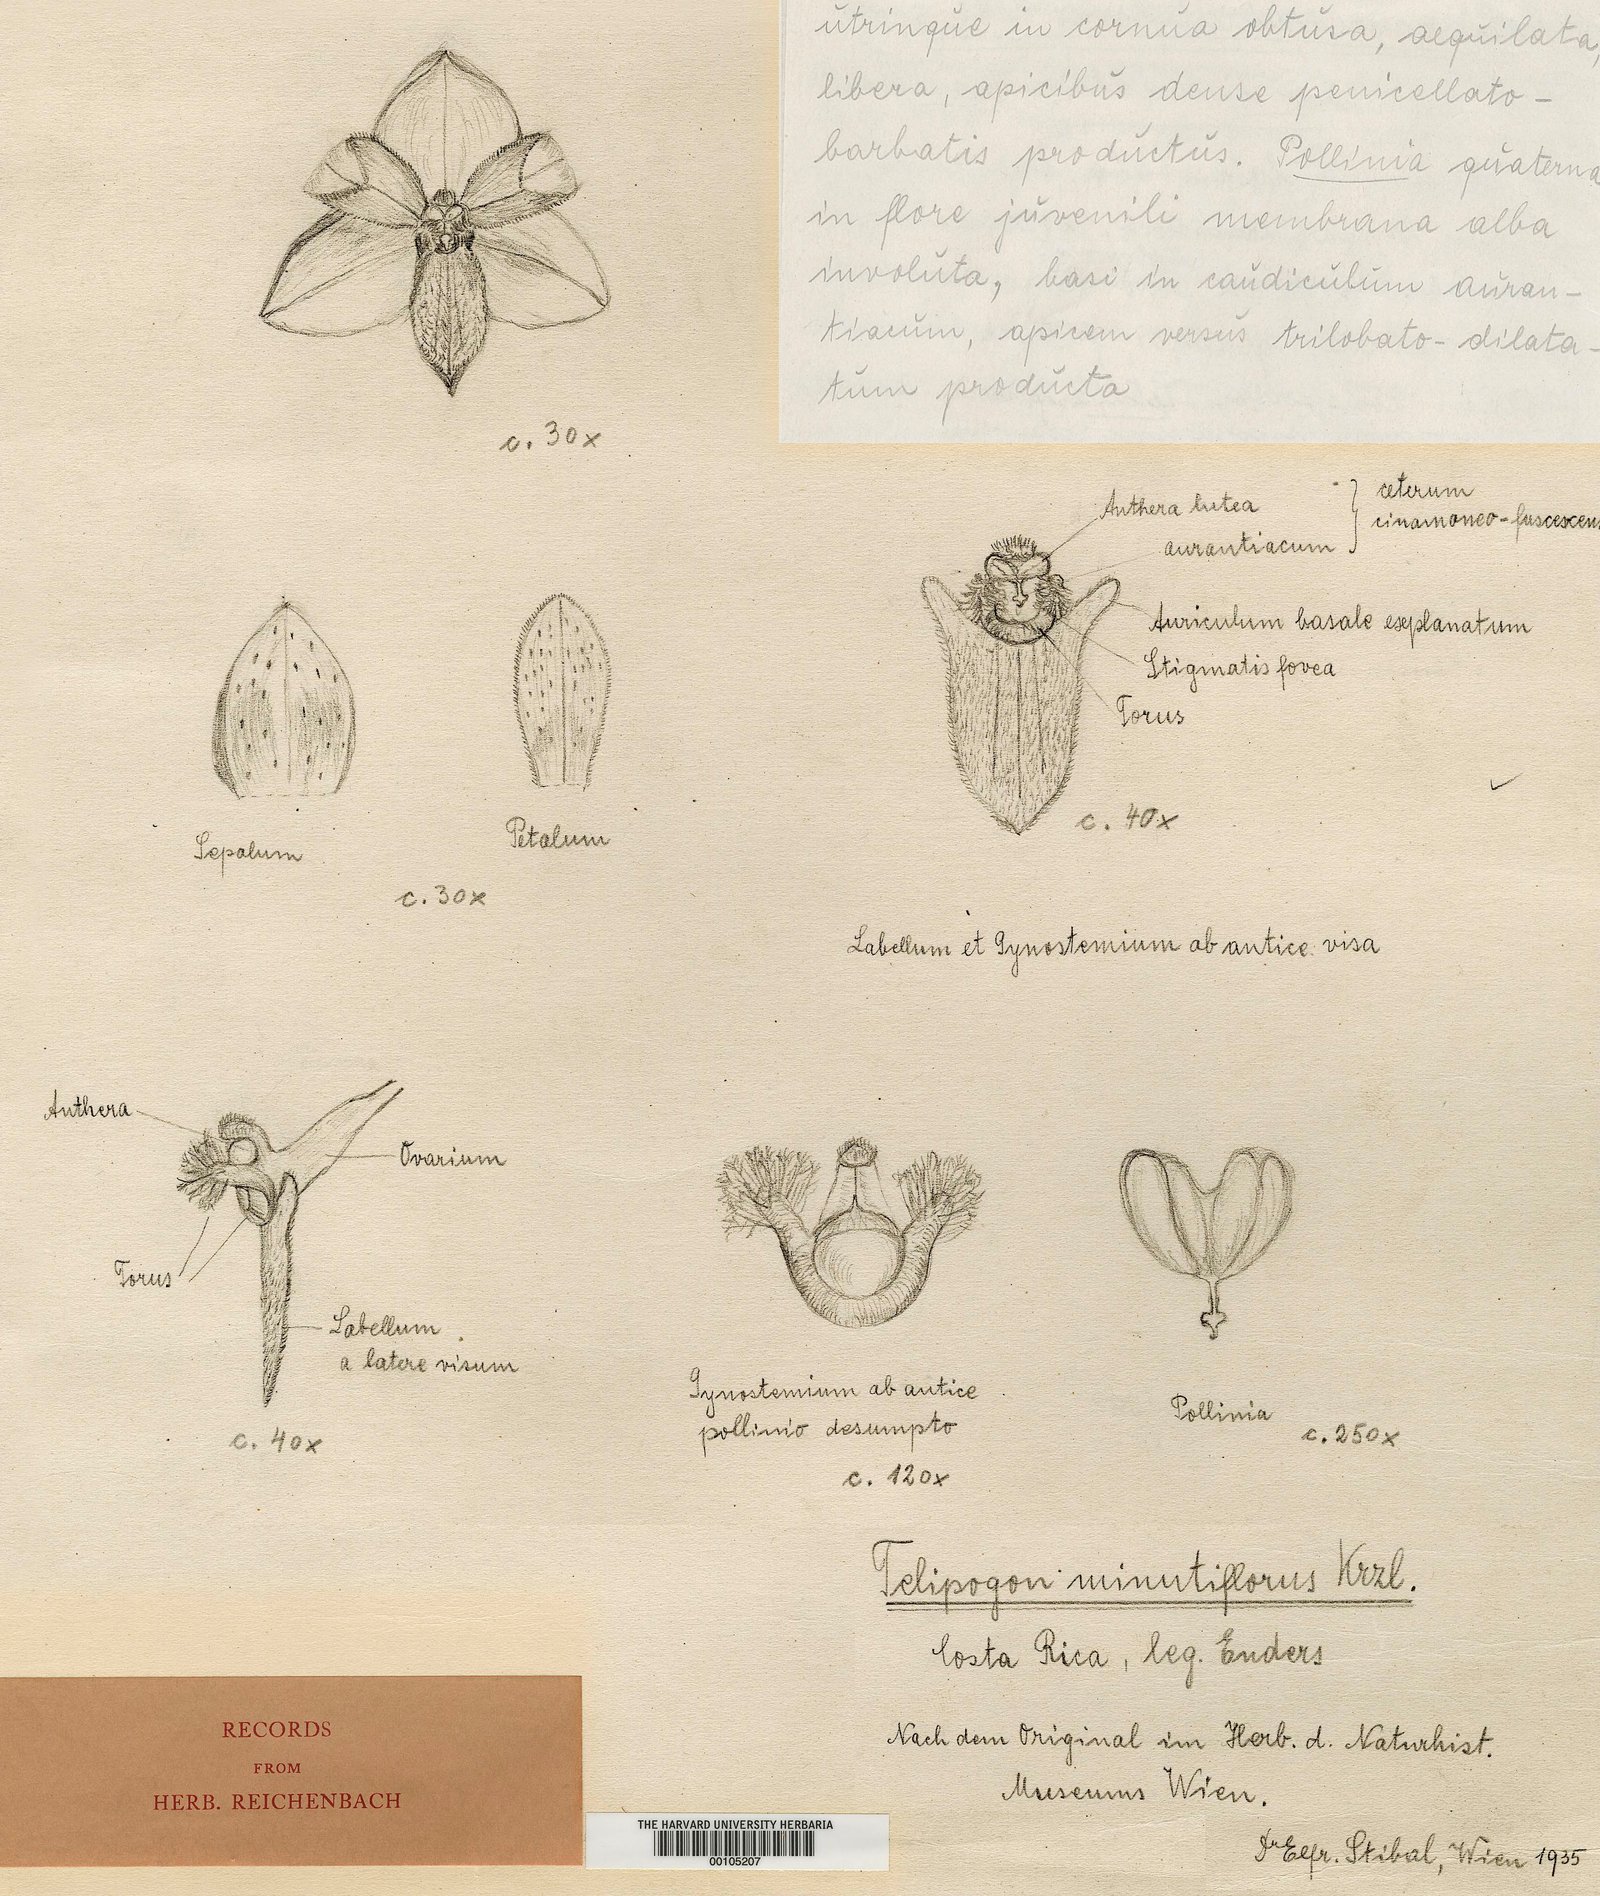 utrinque in cornua obtusa, aequilata,
libera, apicibus dense penicellato-
barbatis productus. Pollinia quaterna
in flore juvenili membrana alba
involuta, basi in caudiculum auran-
tiacum, apicem versus trilobato-dilata-
tum producta
c. 30x
Anthera lutea
aurantiacum
ceterum
cinamoneo-fuscescens
Auriculum basale explanatum
Stigmatis fovea
Torus
c. 40x
Sepalum
Petalum
c. 30x
Labellum et Gynostemium ab antice visa
Anthera
Ovarium
Torus
Labellum
a latere visum
c. 40x
Gynostemium ab antice
pollinio desumpto
c. 120x
Pollinia
c. 250x
Telipogon minutiflorus Krzl.
Costa Rica, leg. Enders
Nach dem Original im Herb. d. Naturhist.
Museums Wien.
Dr Elfr. Stibal, Wien 1935
RECORDS
FROM
HERB. REICHENBACH
THE HARVARD UNIVERSITY HERBARIA
00105207